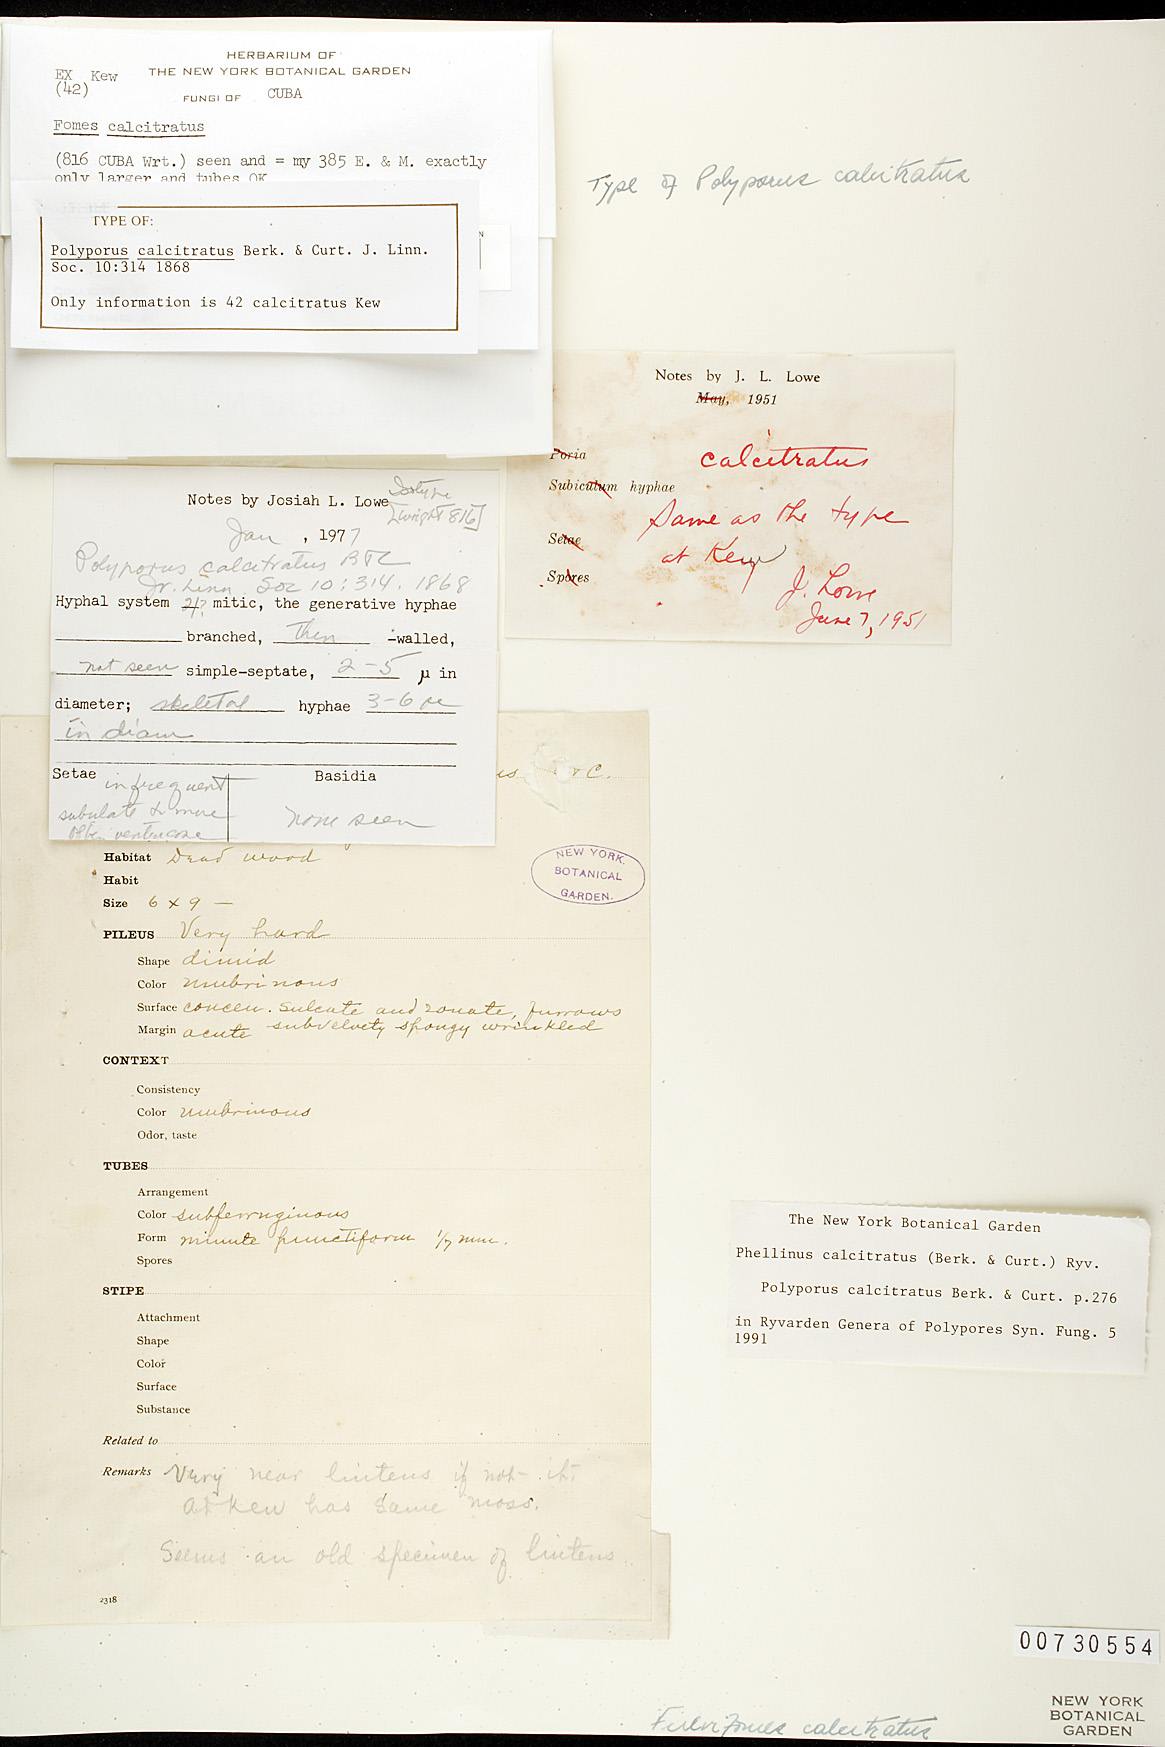 HERBARIUM OF
EX Kew THE NEW YORK BOTANICAL GARDEN
(42)
FUNGI OF CUBA
Fomes calcitratus
(816 CUBA Wrt.) seen and = my 385 E. & M. exactly
only larger and tubes OK
TYPE OF:
Polyporus calcitratus Berk. & Curt. J. Linn.
Soc. 10:314 1868
Only information is 42 calcitratus Kew
Type of Polyporus calcitratus
Notes by J. L. Lowe
May, 1951
Poria calcitratus
Subiculum hyphae
Same as the type
Setae at Kew
Spores J. Lowe
June 7, 1951
Notes by Josiah L. Lowe Isotype
[Wright 816]
Jan , 1977
Polyporus calcitratus B & C
Jr. Linn Soc 10:314. 1868
Hyphal system 2/? mitic, the generative hyphae
branched, thin -walled,
not seen simple-septate, 2-5 µ in
diameter; skeletal hyphae 3-6 µ
in diam
Setae infrequent Basidia
subulate & more
often ventricose none seen
us & C.
Habitat Dead wood
Habit
Size 6 x 9 —
NEW YORK
BOTANICAL
GARDEN.
PILEUS Very hard
Shape dimid
Color umbrinous
Surface concen. sulcate and zonate, furrows
Margin acute subvelvety spongy wrinkled
CONTEXT
Consistency
Color umbrinous
Odor, taste
TUBES
Arrangement
Color subferruginous
Form minute punctiform 1/7 mm.
Spores
STIPE
Attachment
Shape
Color
Surface
Substance
Related to
Remarks Very near linteus if not it.
At Kew has same moss.
Seems an old specimen of linteus
2318
The New York Botanical Garden
Phellinus calcitratus (Berk. & Curt.) Ryv.
Polyporus calcitratus Berk. & Curt. p.276
in Ryvarden Genera of Polypores Syn. Fung. 5
1991
00730554
NEW YORK
BOTANICAL
GARDEN
Fulvifomes calcitratus